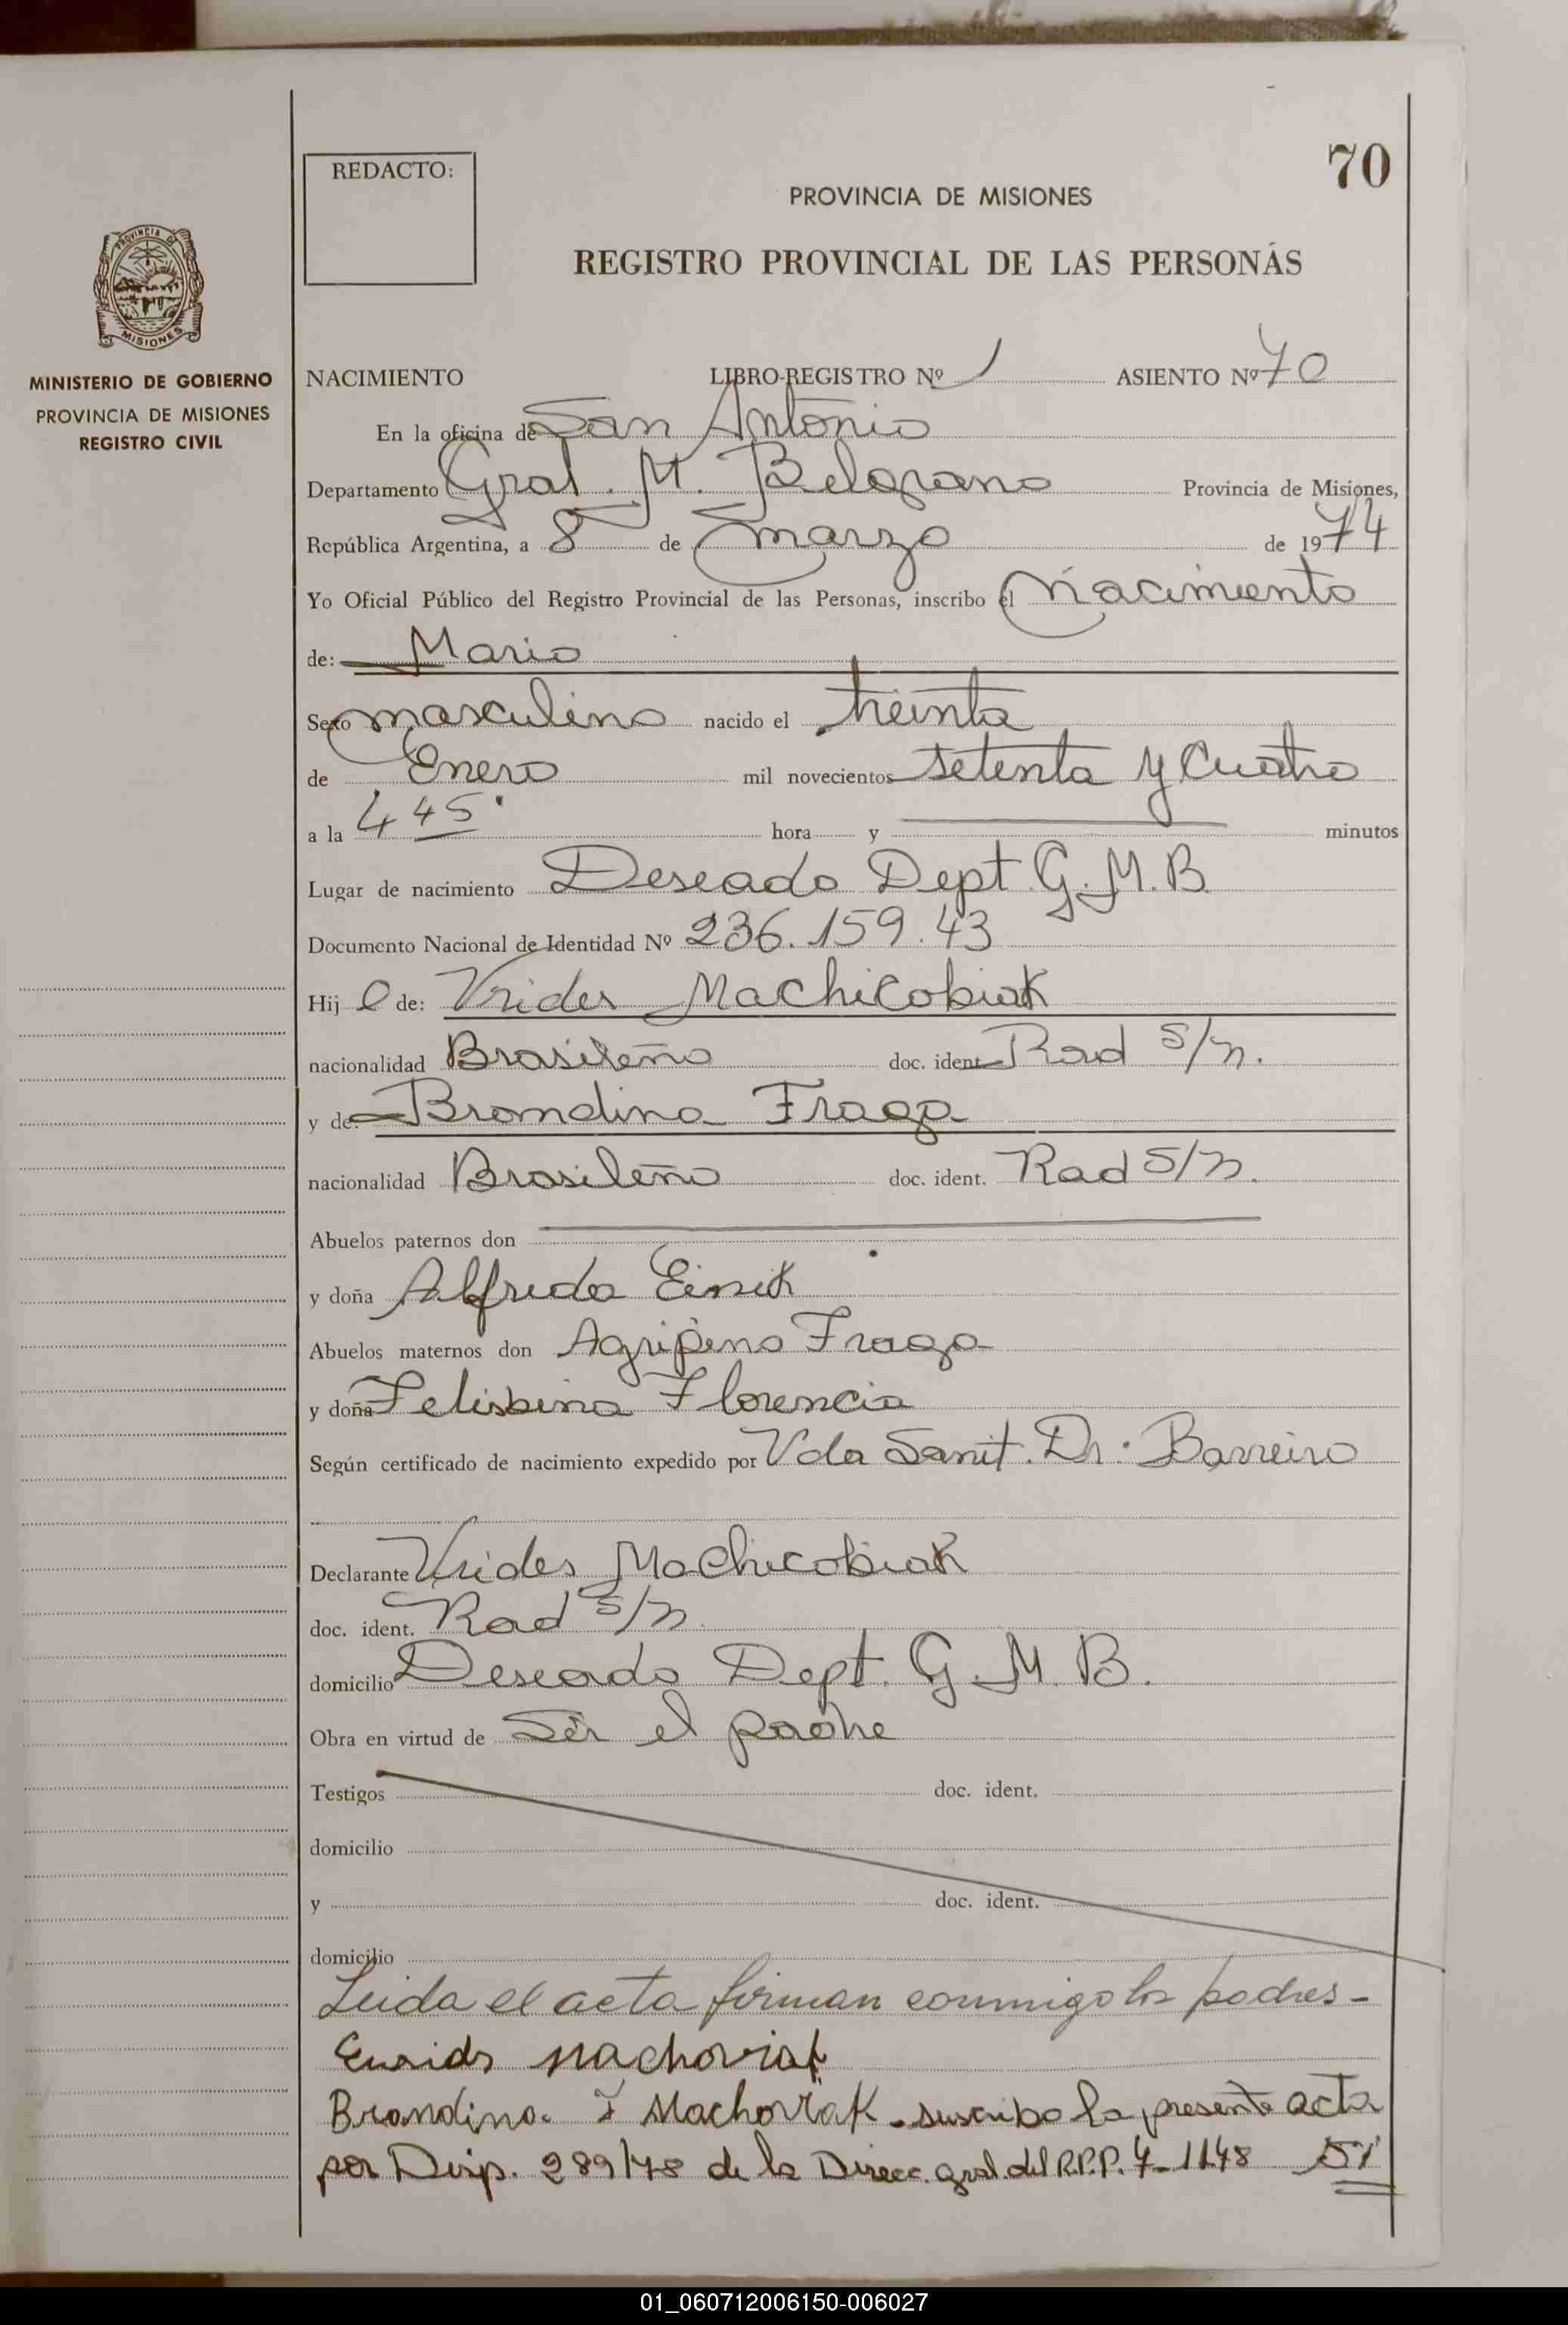 70
REDACTO:
PROVINCIA DE MISIONES
REGISTRO PROVINCIAL DE LAS PERSONÁS
PROVINCIA DE
MISIONES
MINISTERIO DE GOBIERNO
PROVINCIA DE MISIONES
REGISTRO CIVIL
NACIMIENTO LIBRO-REGISTRO Nº 1 ASIENTO Nº 70
En la oficina de San Antonio
Departamento Gral. M. Belgrano Provincia de Misiones,
República Argentina, a 8 de marzo de 1974
Yo Oficial Público del Registro Provincial de las Personas, inscribo el Nacimiento
de: Mario
Sexo masculino nacido el treinta
de Enero mil novecientos setenta y Cuatro
a la 4 45' hora y minutos
Lugar de nacimiento Deseado Dept G.M.B
Documento Nacional de Identidad Nº 236.159.43
Hij o de: Vrides Machicobiak
nacionalidad Brasileño doc. ident. Rad S/n.
y de: Brandina Fraga
nacionalidad Brasileño doc. ident. Rad S/n.
Abuelos paternos don
y doña Alfreda
Abuelos maternos don Agripino Fraga
y doña Felisbina Florencia
Según certificado de nacimiento expedido por Sanit. Dr. Barreiro
Declarante Vrides Machicobiak
doc. ident. Rad S/n.
domicilio Deseado Dept. G.M.B.
Obra en virtud de Ser el padre
Testigos doc. ident.
domicilio
y doc. ident.
domicilio
Leida el acta firman conmigo los padres -
Eurids Machoviak
Brandina F Machoviak - suscribo la presente acta
por Disp. 289/78 de la Direcc. gral. del R.P.P.
01_060712006150-006027